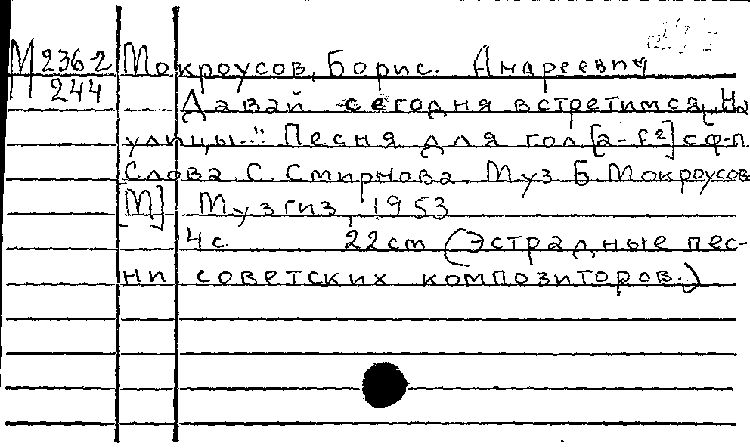 М 236-2 Мокроусов, Борис. Андреевич
М 244 Давай сегодня встретимся „На
улицы..." Песня для гол. [a-f²] с ф-п.
Слова С. Смирнова. Муз Б. Мокроусов
[М] Музгиз, 1953
4 с. 22 cm (Эстрадные пес-
ни советских композиторов.)